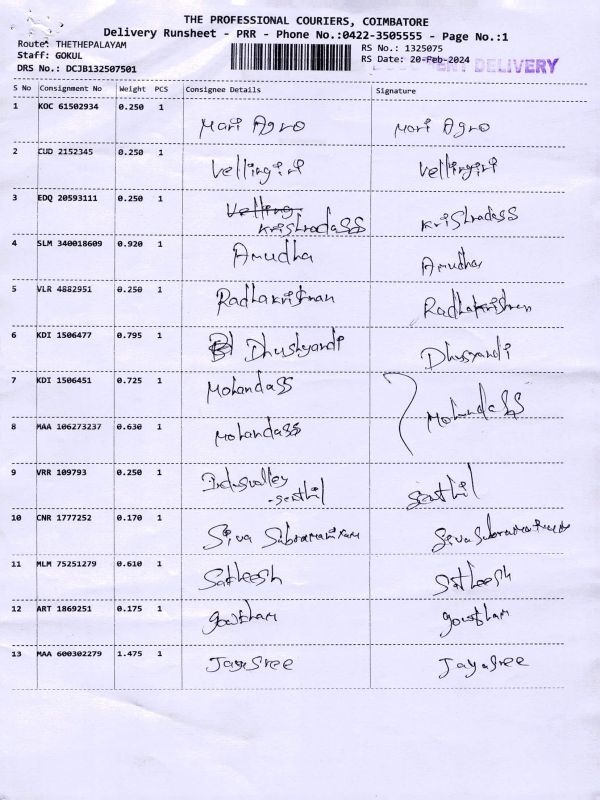 THE PROFESSIONAL COURIERS, COIMBATORE
Delivery Runsheet - PRR - Phone No.:0422-3505555 - Page No.:1
Route: THETHEPALAYAM
RS No.: 1325075
Staff: GOKUL
RS Date: 20-Feb-2024
DRS No.: DCJB132507501
DOCUMENT DELIVERY
S No Consignment No Weight PCS Consignee Details Signature
1 KOC 61502934 0.250 1
Mari Agro Mari Agro
2 CUD 2152345 0.250 1
Vellingiri Vellingiri
3 EDQ 20593111 0.250 1 Velling
Krishradass Krishradass
4 SLM 340018609 0.920 1
Amudha Amudha
5 VLR 4882951 0.250 1
Radhakrishnan Radhakrishnan
6 KDI 1506477 0.795 1
Dhushyandi Dhusyandi
7 KDI 1506451 0.725 1
Mohandass Mohandass
8 MAA 106273237 0.630 1
Mohandass
9 VRR 109793 0.250 1
Indusvalley
-senthil Senthil
10 CNR 1777252 0.170 1
Siva Subramaniyam Siva Subramaniyam
11 MLM 75251279 0.610 1
Satheesh Satheesh
12 ART 1869251 0.175 1
gowtham gowtham
13 MAA 600302279 1.475 1
Jayasree Jayasree